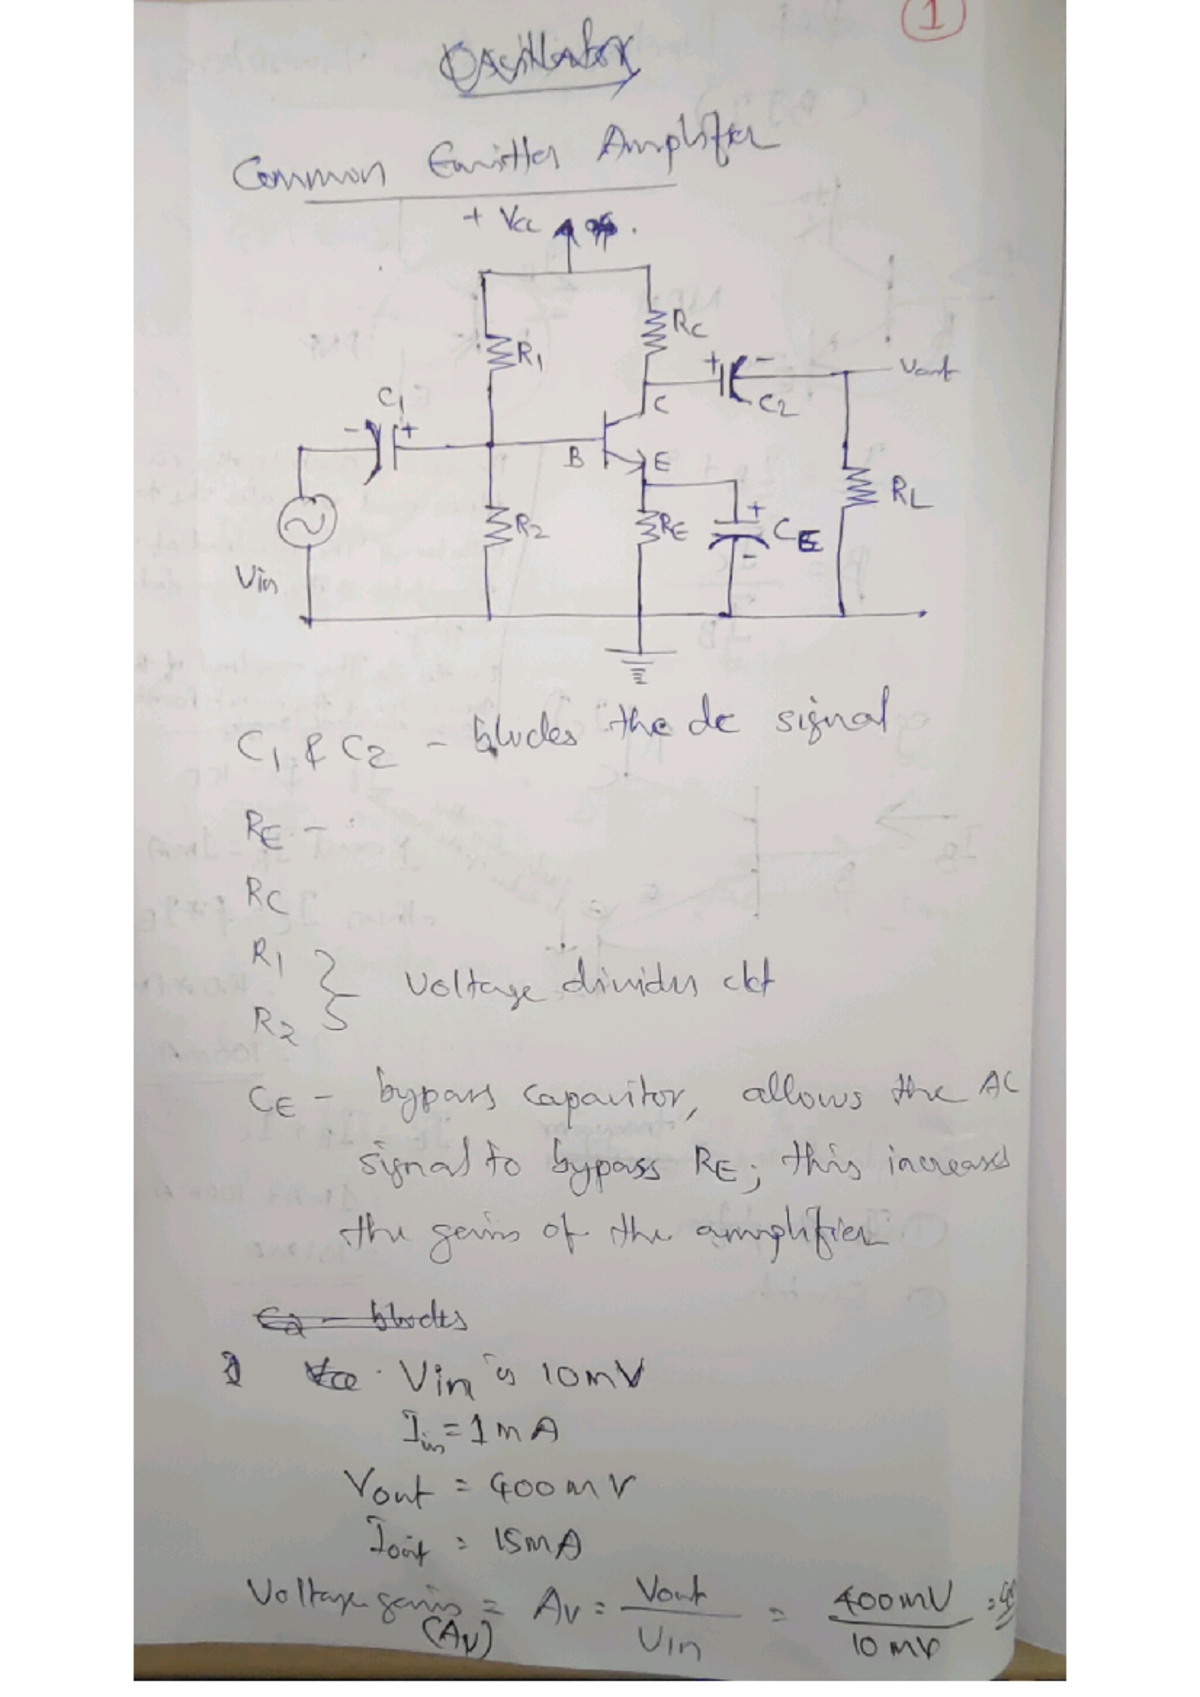 1
Oscillator
Common Emitter Amplifier
+ Vcc
R1
RC
+ -
Vout
C1
C2
- +
C
B
E
RL
R2
RE
+
CE
-
Vin
C1 & C2 - blocks the dc signal
RE -
RC
R1
R2 } Voltage divider ckt
CE - bypass capacitor, allows the AC
signal to bypass RE; this increases
the gain of the amplifier
C2 - blocks
Vin is 10mV
Iin = 1mA
Vout = 400mV
Iout = 15mA
Voltage gain = AV = Vout / Vin = 400mV / 10mV =
(AV)